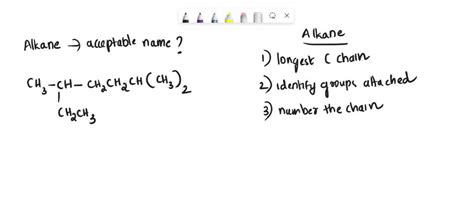 Alkane → acceptable name ?
CH₃-CH-CH₂CH₂CH(CH₃)₂
|
CH₂CH₃
Alkane
1) longest C chain
2) identify groups attached
3) number the chain